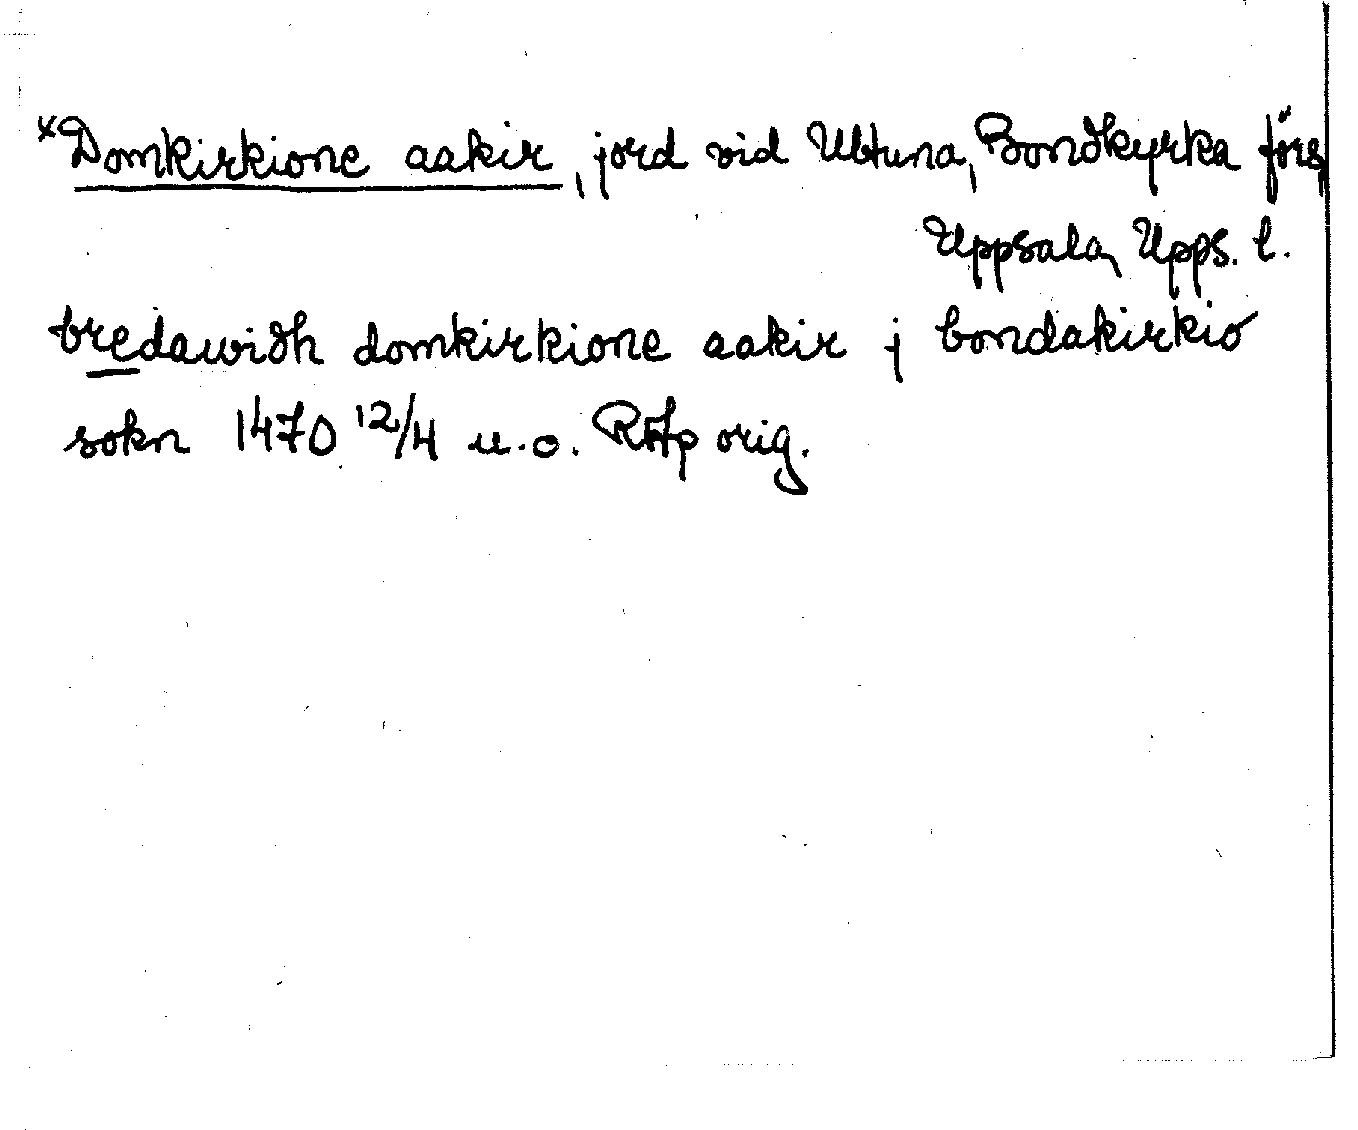 ×Domkirkione aakir, jord vid Ultuna, Bondkyrka förs,
Uppsala, Upps. l.
bredawidh domkirkione aakir j bondakirkio
sokn 1470 12/4 u.o. RAp orig.